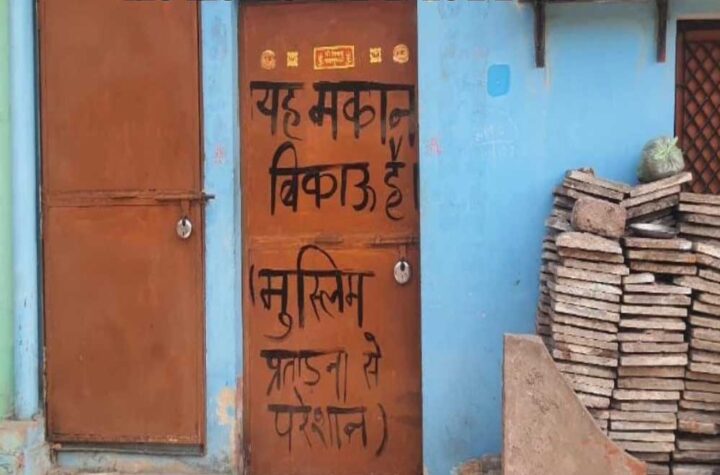 यह मकान
बिकाऊ है।
(मुस्लिम
प्रताड़ना से
परेशान)